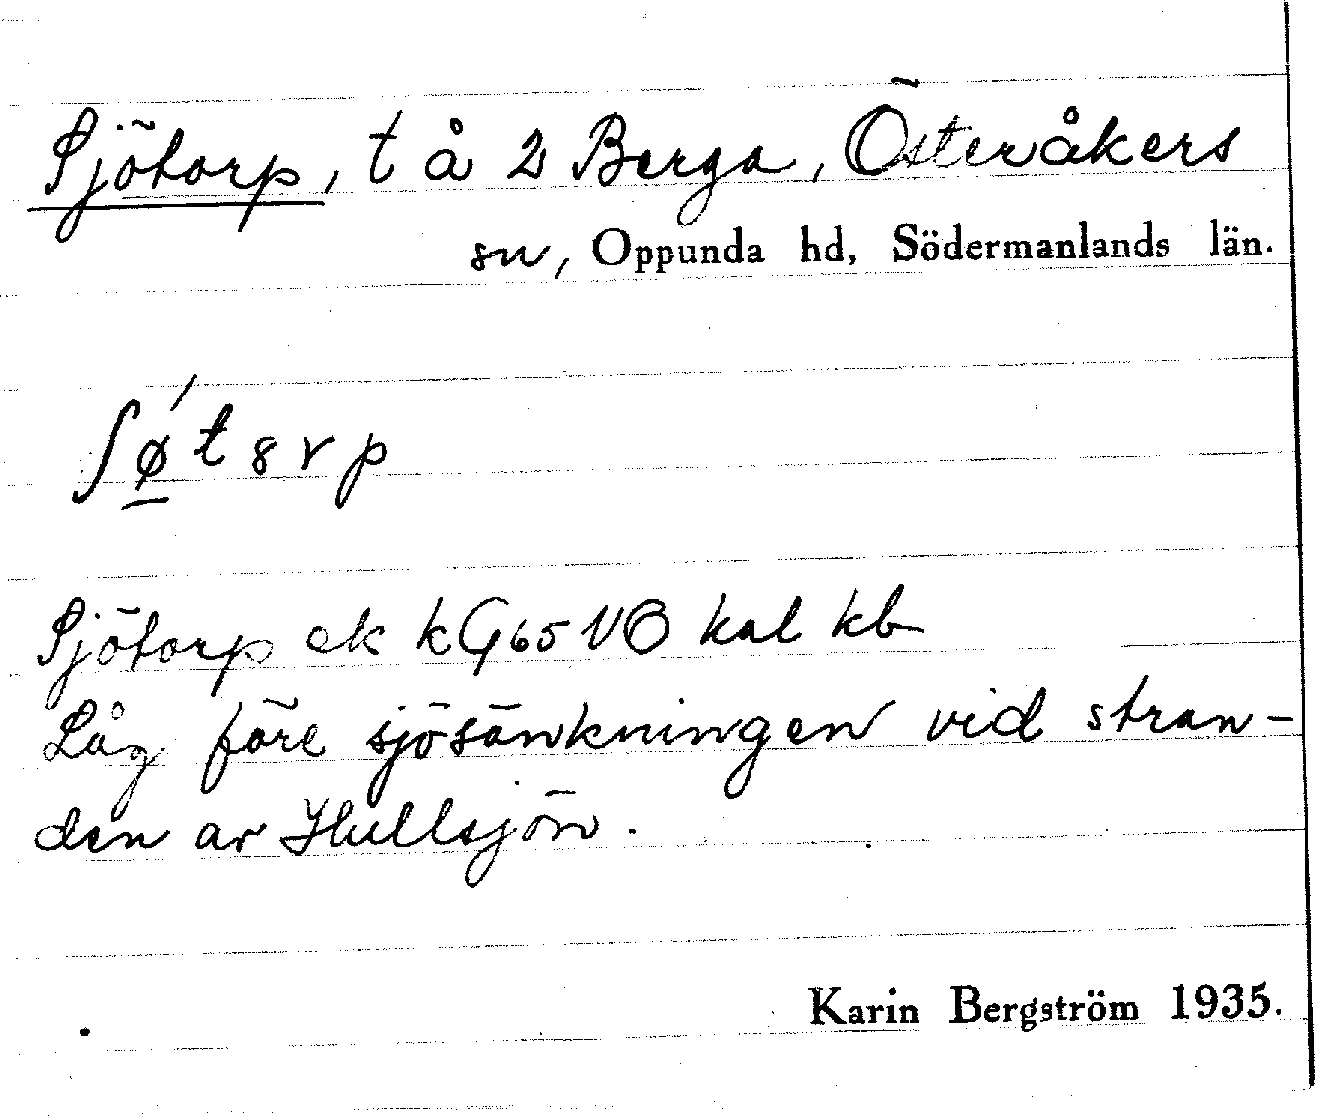 Sjötorp, t å 2 Berga, Österåkers
sn, Oppunda hd, Södermanlands län.
ʃǿ̱t8rp
Sjötorp ek kG65NO kal kb
Låg före sjösänkningen vid stran-
den av Hullsjön.
Karin Bergström 1935.